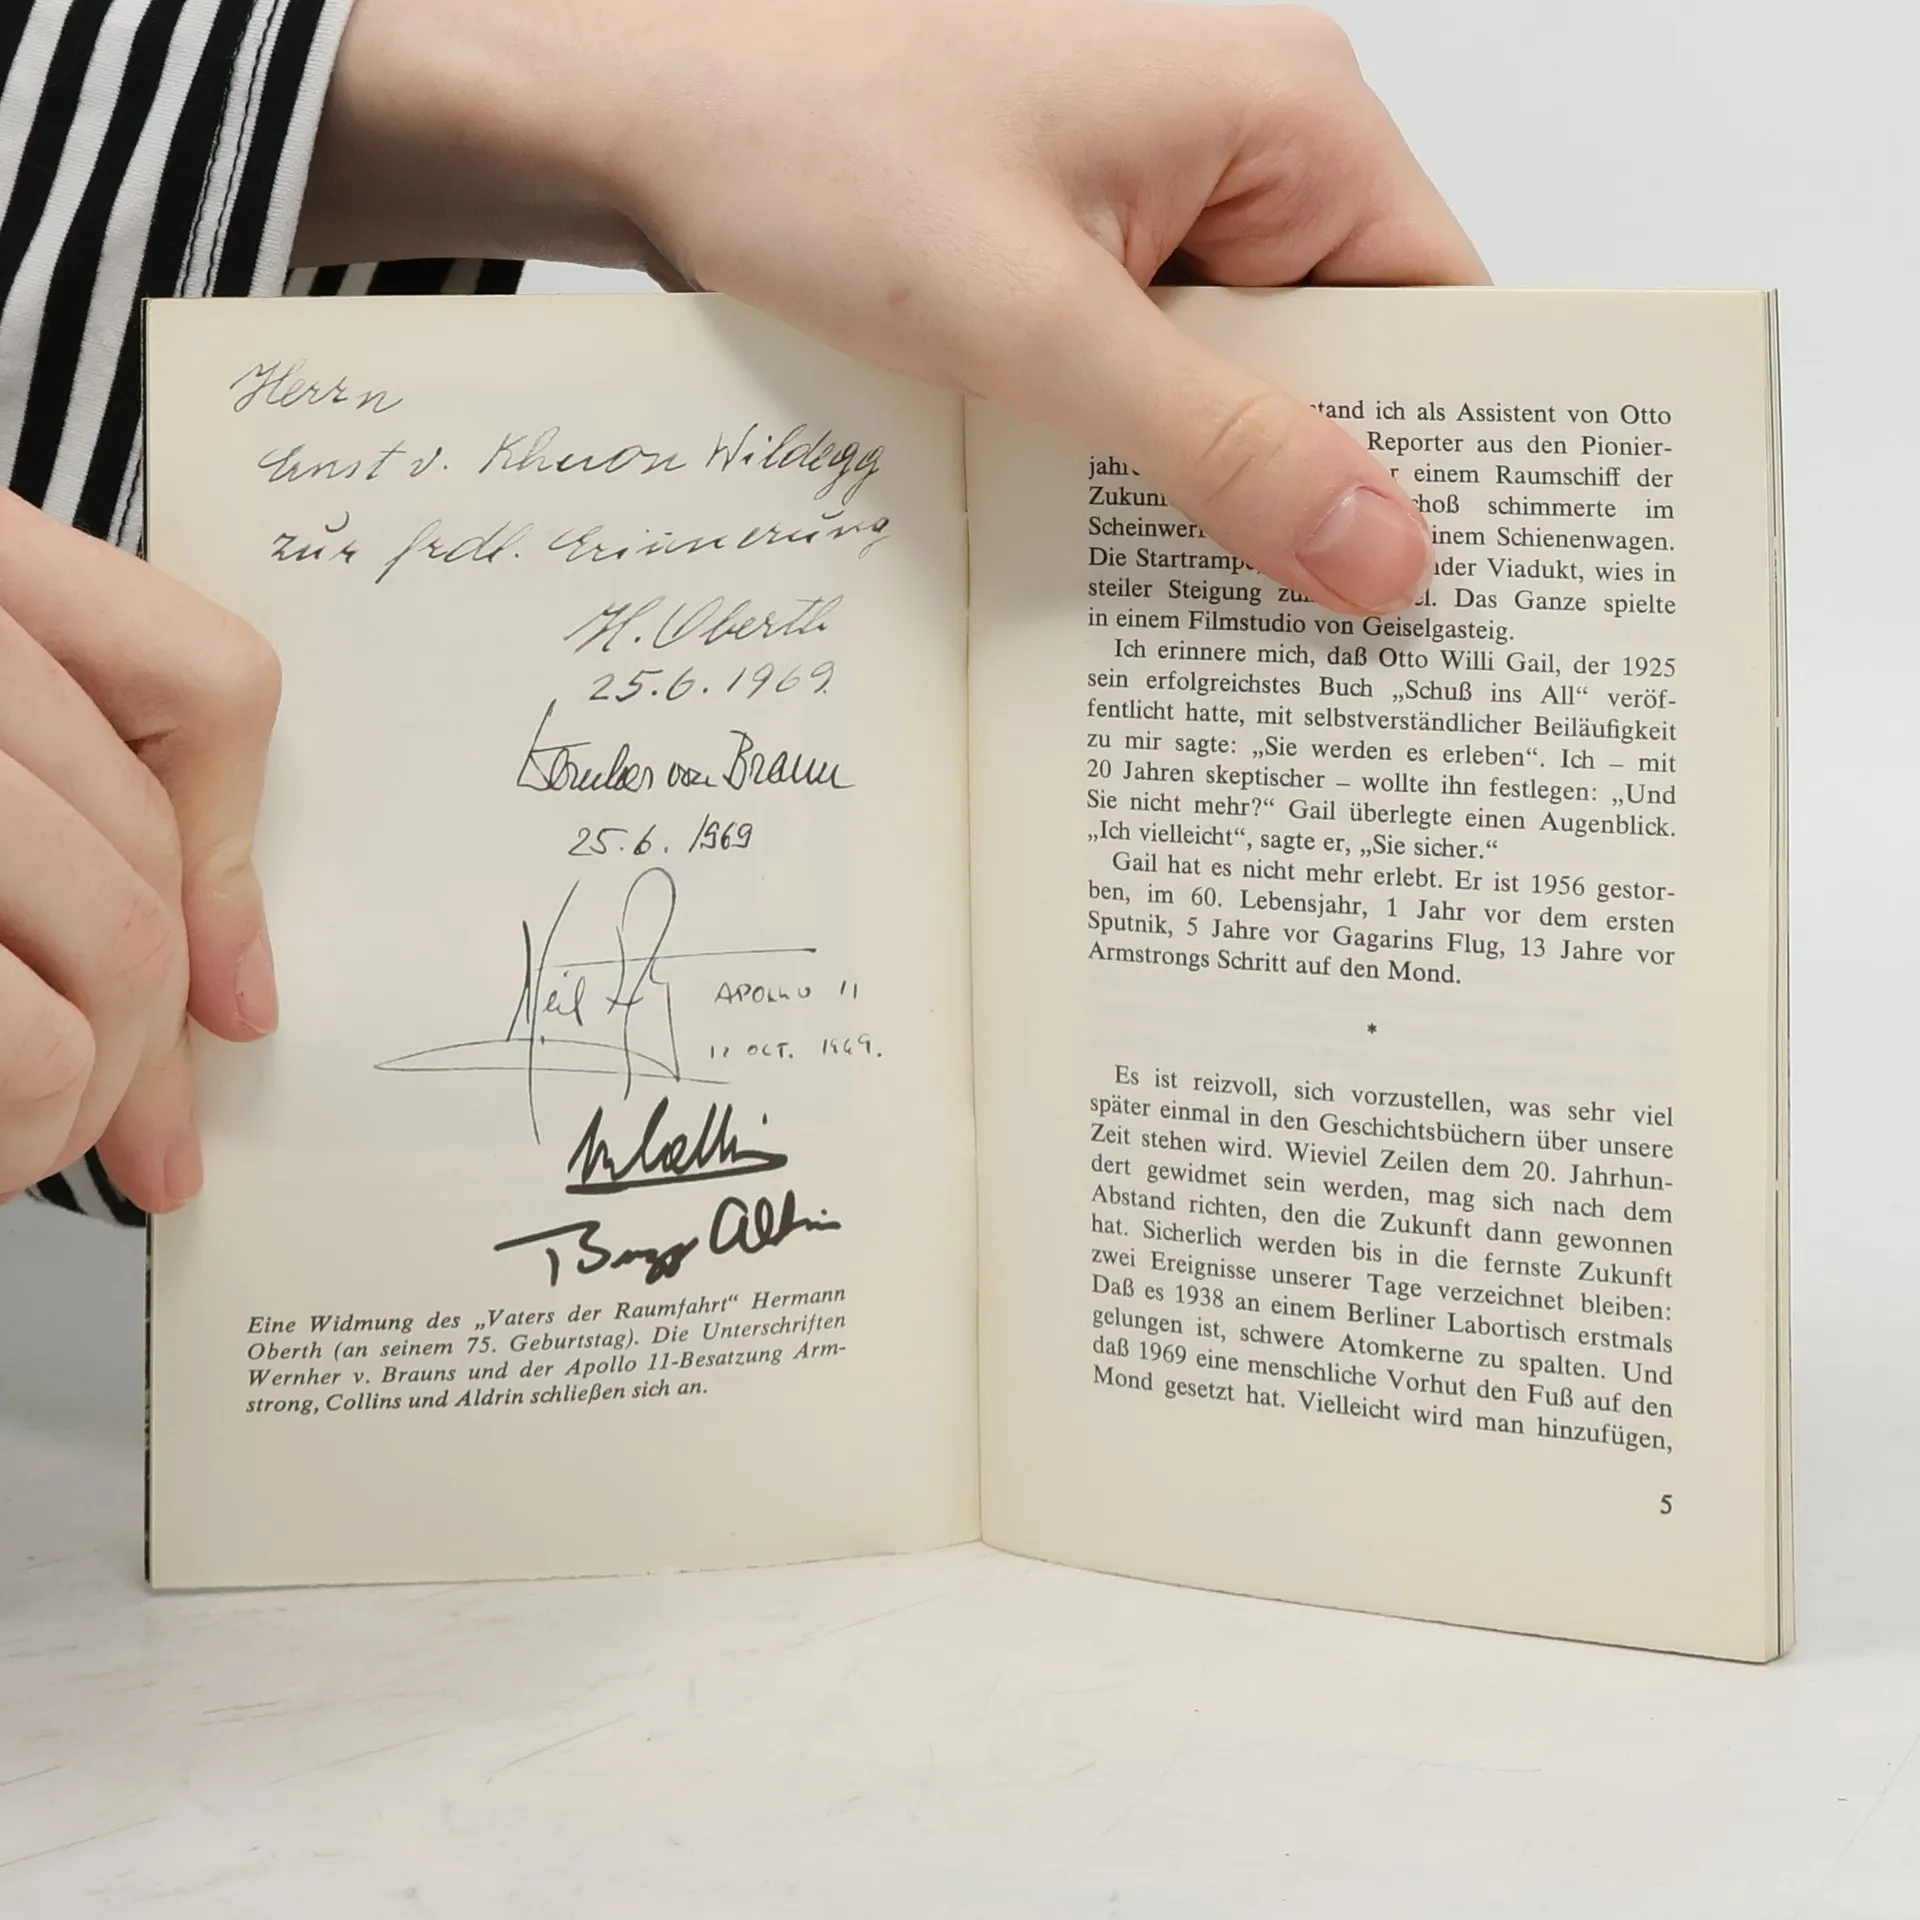 Herrn
Ernst v. Khuon Wildegg
zur frdl. Erinnerung
H. Oberth
25.6.1969.
Wernher von Braun
25.6.1969
Neil
APOLLO 11
12 OCT. 1969.
M Collins
Buzz Aldrin
Eine Widmung des „Vaters der Raumfahrt“ Hermann
Oberth (an seinem 75. Geburtstag). Die Unterschriften
Wernher v. Brauns und der Apollo 11-Besatzung Arm-
strong, Collins und Aldrin schließen sich an.
ich als Assistent von Otto
Reporter aus den Pionier-
einem Raumschiff der
schimmerte im
Schienenwagen.
Die Viadukt, wies in
steiler Steigung Das Ganze spielte
in einem Filmstudio von Geiselgasteig.
Ich erinnere mich, daß Otto Willi Gail, der 1925
sein erfolgreichstes Buch „Schuß ins All“ veröf-
fentlicht hatte, mit selbstverständlicher Beiläufigkeit
zu mir sagte: „Sie werden es erleben“. Ich – mit
20 Jahren skeptischer – wollte ihn festlegen: „Und
Sie nicht mehr?“ Gail überlegte einen Augenblick.
„Ich vielleicht“, sagte er, „Sie sicher.“
Gail hat es nicht mehr erlebt. Er ist 1956 gestor-
ben, im 60. Lebensjahr, 1 Jahr vor dem ersten
Sputnik, 5 Jahre vor Gagarins Flug, 13 Jahre vor
Armstrongs Schritt auf den Mond.
*
Es ist reizvoll, sich vorzustellen, was sehr viel
später einmal in den Geschichtsbüchern über unsere
Zeit stehen wird. Wieviel Zeilen dem 20. Jahrhun-
dert gewidmet sein werden, mag sich nach dem
Abstand richten, den die Zukunft dann gewonnen
hat. Sicherlich werden bis in die fernste Zukunft
zwei Ereignisse unserer Tage verzeichnet bleiben:
Daß es 1938 an einem Berliner Labortisch erstmals
gelungen ist, schwere Atomkerne zu spalten. Und
daß 1969 eine menschliche Vorhut den Fuß auf den
Mond gesetzt hat. Vielleicht wird man hinzufügen,
5